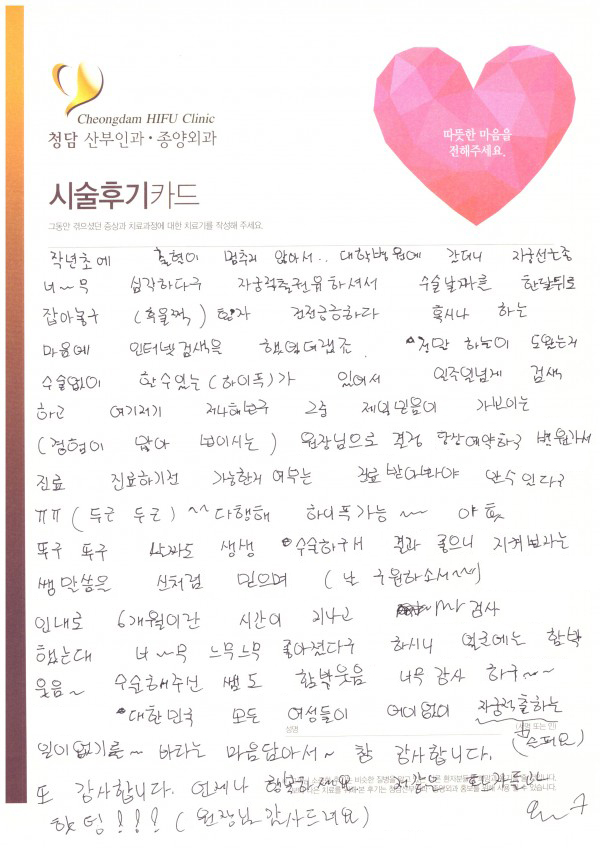 Cheongdam HIFU Clinic
청담 산부인과·종양외과
따뜻한 마음을
전해주세요.
시술후기카드
그동안 겪으셨던 증상과 치료과정에 대한 치료기를 작성해 주세요.
작년초에 출혈이 멈추지 않아서.. 대학병원에 갔더니 자궁선근종
너~무 심각하다구 자궁적출권유하셔서 수술날짜를 한달뒤로
잡아놓구 (훅울쩍) 혼자 전전긍긍하다 혹시나 하는
마음에 인터넷검색을 했었더랬죠. 정말 하늘이 도왔는지
수술없이 할수있는 (하이푸)가 있어서 일주일넘게 검색
하고 여기저기 전화해보구 그중 제일믿음이 가보이는
(경험이 많아 보이시는) 원장님으로 결정 당장예약하구 병원가서
진료 진료하기전 가능한지 여부는 진료 받아봐야 알수 있다구
ㅠㅠ (두근 두근) ~~ 다행히 하이푸가능 ~~ 야호
또구 또구 날짜도 생생 수술하구서 결과 좋으니 지켜보자는
쌤말씀을 신처럼 믿으며 (날 구원하소서~~)
인내로 6개월이란 시간이 지나고 MR 검사
했는데 너~무 느무느무 좋아졌다구 하시니 얼굴에는 함박
웃음~ 수술해주신 쌤도 함박웃음 너무 감사 하구~~
대한민국 모든 여성들이 어이없이 자궁적출하는
성명 (서명 또는 인)
일이없기를~ 바라는 마음담아서~ 참 감사합니다. (슬퍼요)
또 감사합니다. 언제나 행복하세요 저같은 환자들이
화팅!!! (원장님 감사드려요)